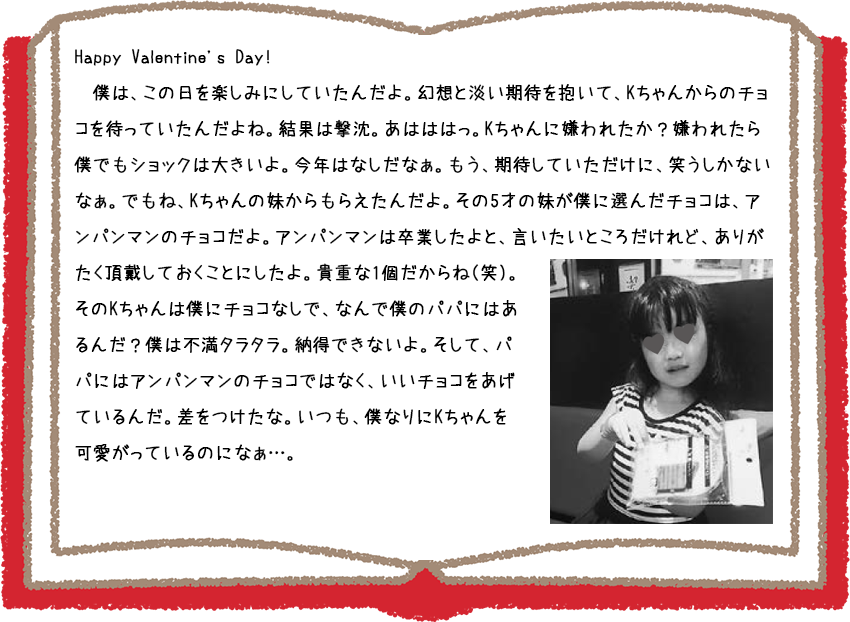 Happy Valentine's Day!
僕は、この日を楽しみにしていたんだよ。幻想と淡い期待を抱いて、Kちゃんからのチョ
コを待っていたんだよね。結果は撃沈。あはははっ。Kちゃんに嫌われたか？嫌われたら
僕でもショックは大きいよ。今年はなしだなぁ。もう、期待していただけに、笑うしかない
なぁ。でもね、Kちゃんの妹からもらえたんだよ。その5才の妹が僕に選んだチョコは、ア
ンパンマンのチョコだよ。アンパンマンは卒業したよと、言いたいところだけれど、ありが
たく頂戴しておくことにしたよ。貴重な1個だからね(笑)。
そのKちゃんは僕にチョコなしで、なんで僕のパパにはあ
るんだ？僕は不満タラタラ。納得できないよ。そして、パ
パにはアンパンマンのチョコではなく、いいチョコをあげ
ているんだ。差をつけたな。いつも、僕なりにKちゃんを
可愛がっているのになぁ…。